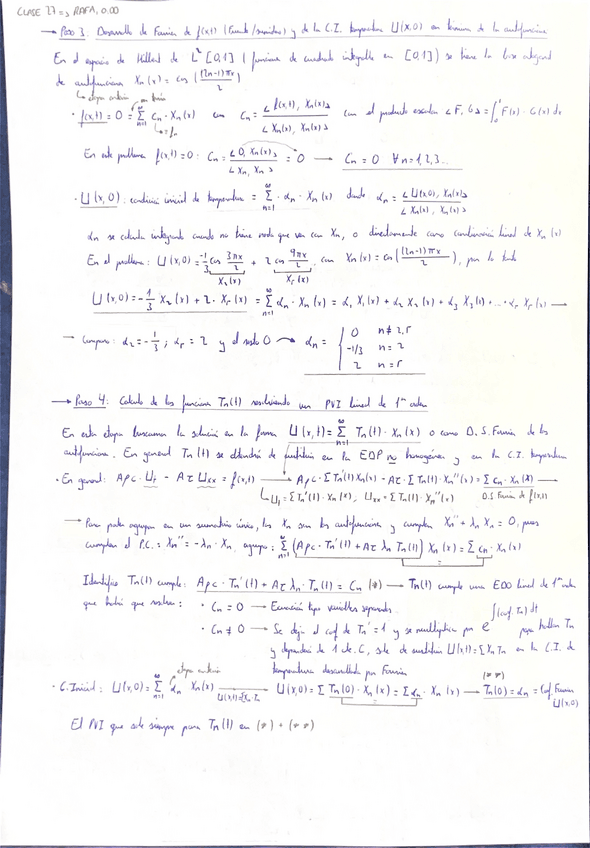 CLASE 27 => RAFA, 0.00
→ Paso 3: Desarrollo de Fourier de f(x,t) (fuente/sumidero) y de la C.I. temperatura U(x,0) en términos de las autofunciones
En el espacio de Hilbert de L²[0,1] (funciones de cuadrado integrable en [0,1]) se tiene la base ortogonal
de autofunciones Xn(x) = cos((2n-1)πx/2)
· f(x,t) = 0 = Σ_{n=1}^∞ Cn · Xn(x) con Cn = <f(x,t), Xn(x)> / <Xn(x), Xn(x)> con el producto escalar <F, G> = ∫ F(x) · G(x) dx
En este problema f(x,t) = 0 : Cn = <0, Xn(x)> / <Xn, Xn> = 0 → Cn = 0 ∀n = 1,2,3...
· U(x,0): condición inicial de temperatura = Σ_{n=1}^∞ αn · Xn(x) donde αn = <U(x,0), Xn(x)> / <Xn(x), Xn(x)>
αn se calcula integrando cuando no tiene nada que ver con Xn, o directamente como combinación lineal de Xn(x)
En el problema: U(x,0) = -1/3 cos 3πx/2 + 2 cos 9πx/2, con Xn(x) = cos((2n-1)πx/2), por lo tanto
X2(x) X5(x)
U(x,0) = -1/3 X2(x) + 2 · X5(x) = Σ_{n=1}^∞ αn · Xn(x) = α1 X1(x) + α2 X2(x) + α3 X3(x) + ... + α5 X5(x) →
→ Comparo: α2 = -1/3 ; α5 = 2 y el resto 0 → αn = { 0 n ≠ 2,5
-1/3 n = 2
2 n = 5
→ Paso 4: Cálculo de las funciones Tn(t) resolviendo un PVI lineal de 1er orden
En esta etapa buscamos la solución en la forma U(x,t) = Σ_{n=1}^∞ Tn(t) · Xn(x) o como D.S. Fourier de las
autofunciones. En general Tn(t) se obtendrá de sustituir en la EDP no homogénea y en la C.I. temperatura
· En general: Aρc · Ut - Aτ Uxx = f(x,t) → Aρc · Σ Tn'(t) Xn(x) - Aτ · Σ Tn(t) · Xn''(x) = Σ Cn · Xn(x) →
Ut = Σ Tn'(t) · Xn(x), Uxx = Σ Tn(t) · Xn''(x) D.S Fourier de f(x,t)
→ Para poder agrupar en un sumatorio único, las Xn son las autofunciones y cumplen Xn'' + λn Xn = 0, pues
cumplen el P.C: Xn'' = -λn · Xn, agrupo: Σ_{n=1}^∞ (Aρc · Tn'(t) + Aτ λn Tn(t)) Xn(x) = Σ Cn · Xn(x)
Identifico Tn(t) cumple: Aρc · Tn'(t) + Aτ λn · Tn(t) = Cn (*) → Tn(t) cumple una EDO lineal de 1er orden
que habrá que resolver: · Cn = 0 → Ecuación tipo variables separadas.
· Cn ≠ 0 → Se deja el coef de Tn' = 1 y se multiplica por e^{∫(coef. Tn) dt} para hallar Tn
y dependerá de 1 cte C, sale de sustituir U(x,t) = Σ Xn Tn en la C.I. de
temperatura desarrollada por Fourier
· C. Inicial: U(x,0) = Σ_{n=1}^∞ αn Xn(x) → U(x,0) = Σ Tn(0) · Xn(x) = Σ αn · Xn(x) → Tn(0) = αn = Coef. Fourier U(x,0)
(**)
El PVI que sale siempre para Tn(t) es (*) + (**)